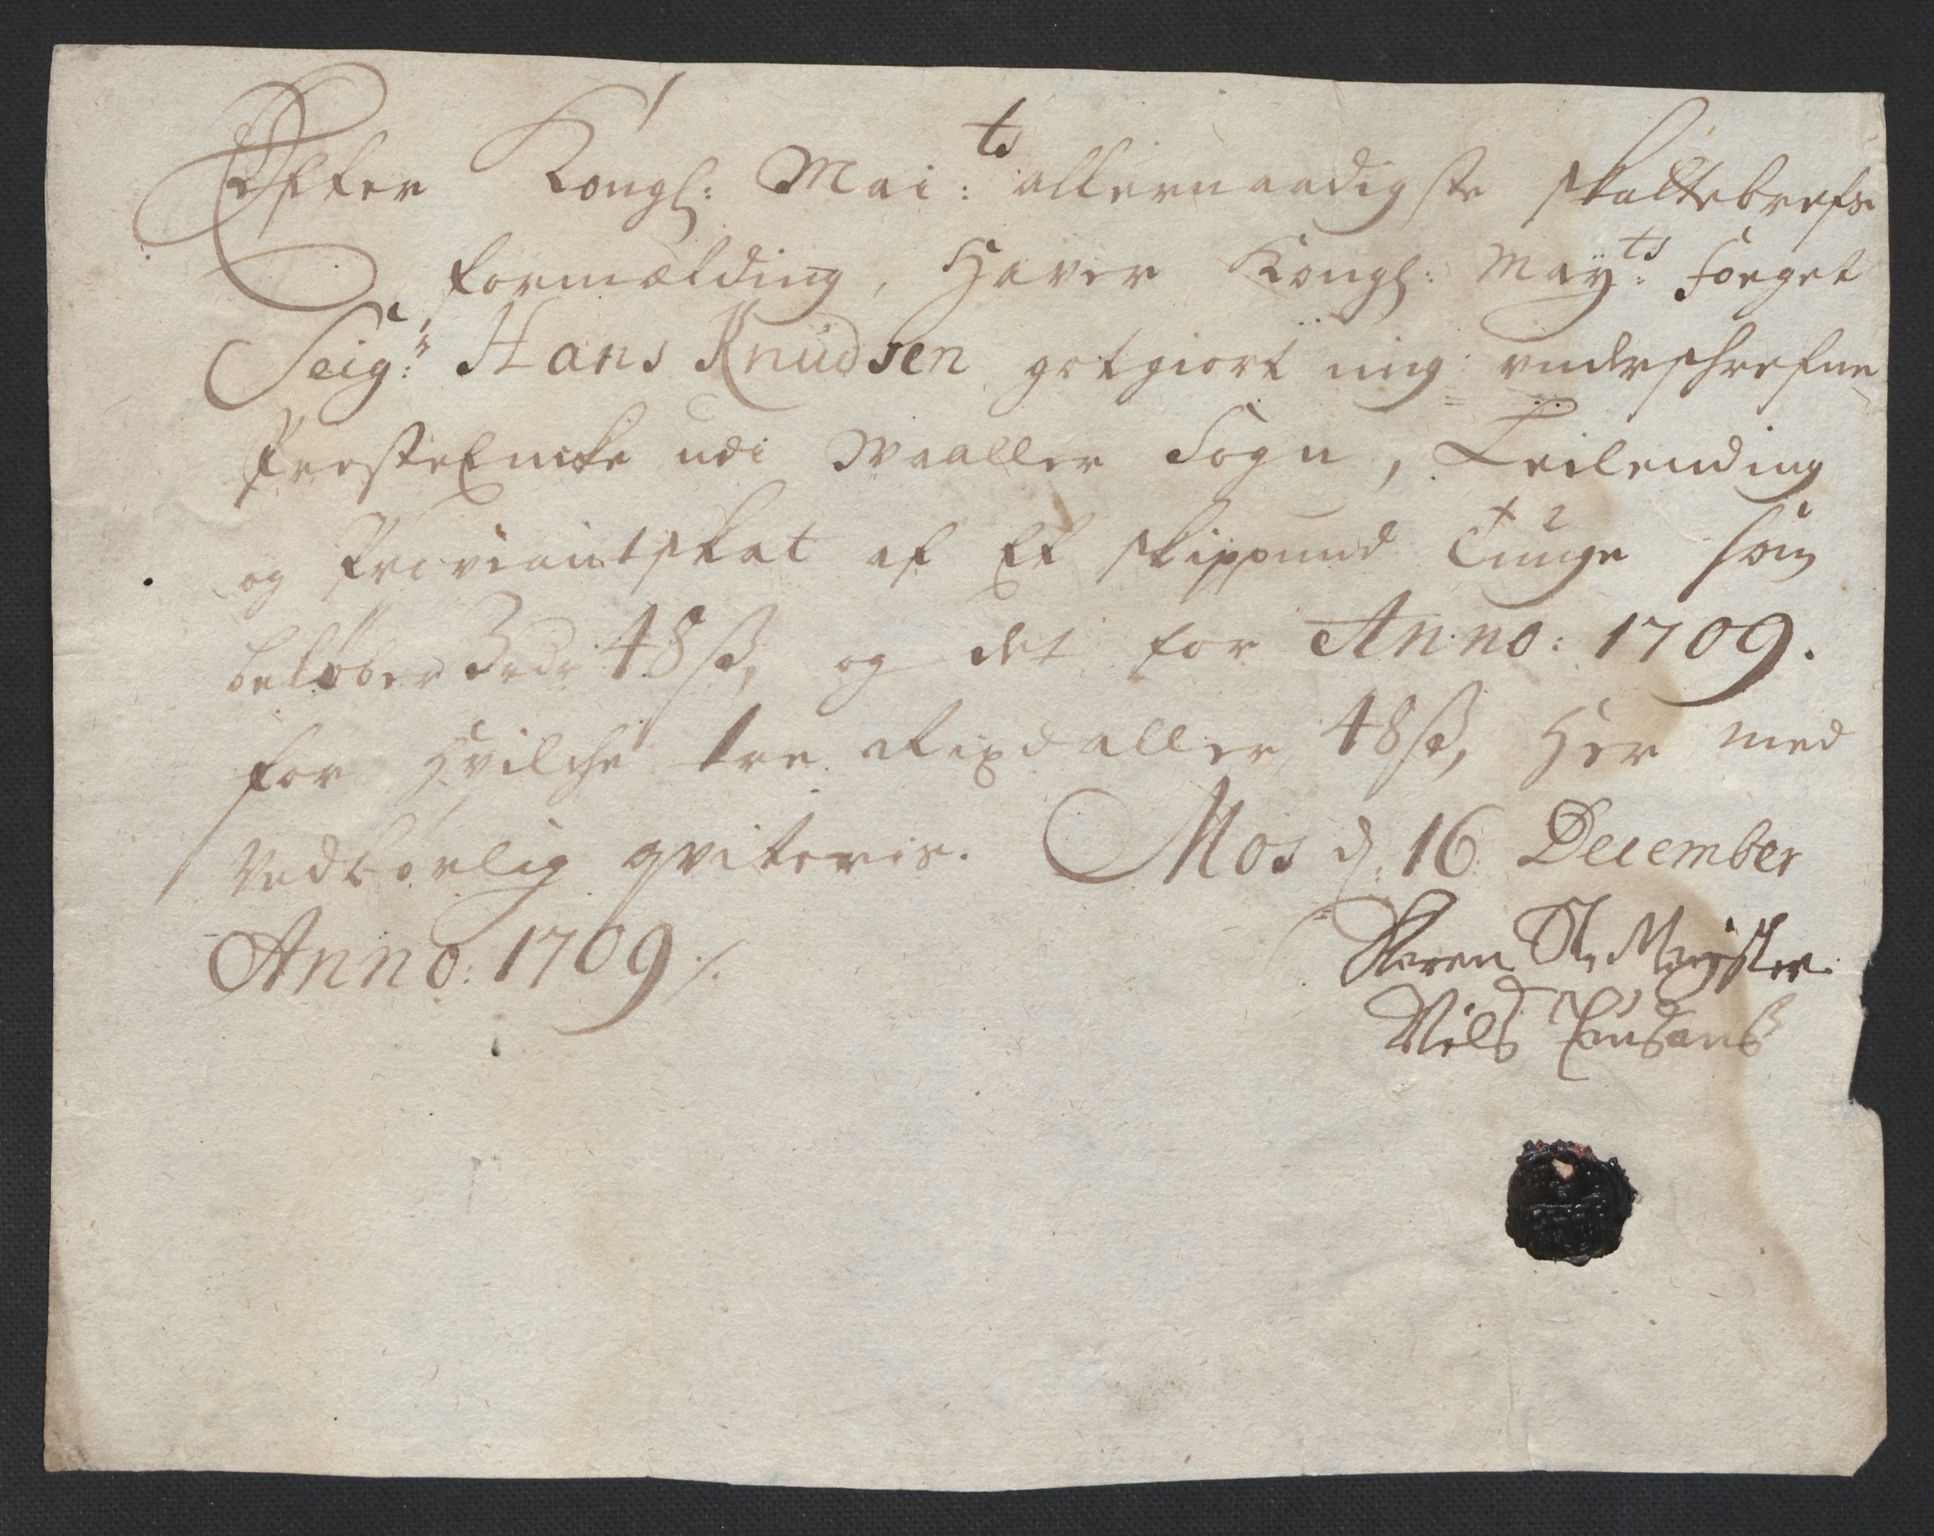 Efter Kongl: Mai:ts allernaadigste skattebrefs
formælding, Haver Kongl: May:ts foeget
Seig:r Hans Knudsen gotgiort mig underschrefne
PresteEncke udi Waaller Sogn, Leilending
og Proviantskat af Et skippund Tunge som
beløber 3 rdr 48 ß, og det for Anno: 1709.
for Hvilche tre Rixdaller 48 ß, Her med
Vedbørlig qviteris. Mos d: 16 December
Anno: 1709 ⁒
Maren
Niels